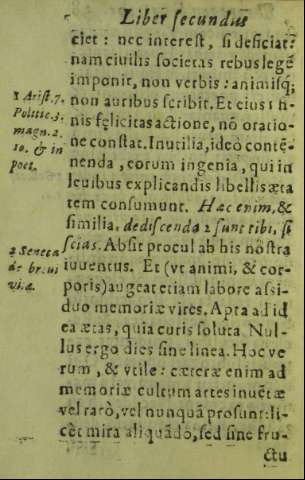 Liber secundus
ciet: nec interest, si deficiat:
nam ciuilis societas rebus legē
imponit, non verbis: animisq;
non auribus scribit. Et eius 1 fi-
nis felicitas actione, nō oratio-
ne constat. Inutilia, ideò contē-
nenda, eorum ingenia, qui in
leuibus explicandis libellis æta
tem consumunt. Hæc enim, &
similia, dediscenda 2 sunt tibi, si
scias. Absit procul ab his nostra
iuuentus. Et (vt animi, & cor-
poris) augeat etiam labore assi-
duo memoriæ vires. Apta ad id
ea ætas, quia curis soluta. Nul-
lus ergo dies sine linea. Hoc ve
rum, & vtile: cæteræ enim ad
memoriæ cultum artes inuētæ
vel rarò, vel nunquā prosunt: li-
cèt mira aliquādo, sed sine fru-
ctu
1 Arist. 7.
Politic. 3.
magn. 2.
10. & in
poet.
2 Seneca
de breui
vi. c.